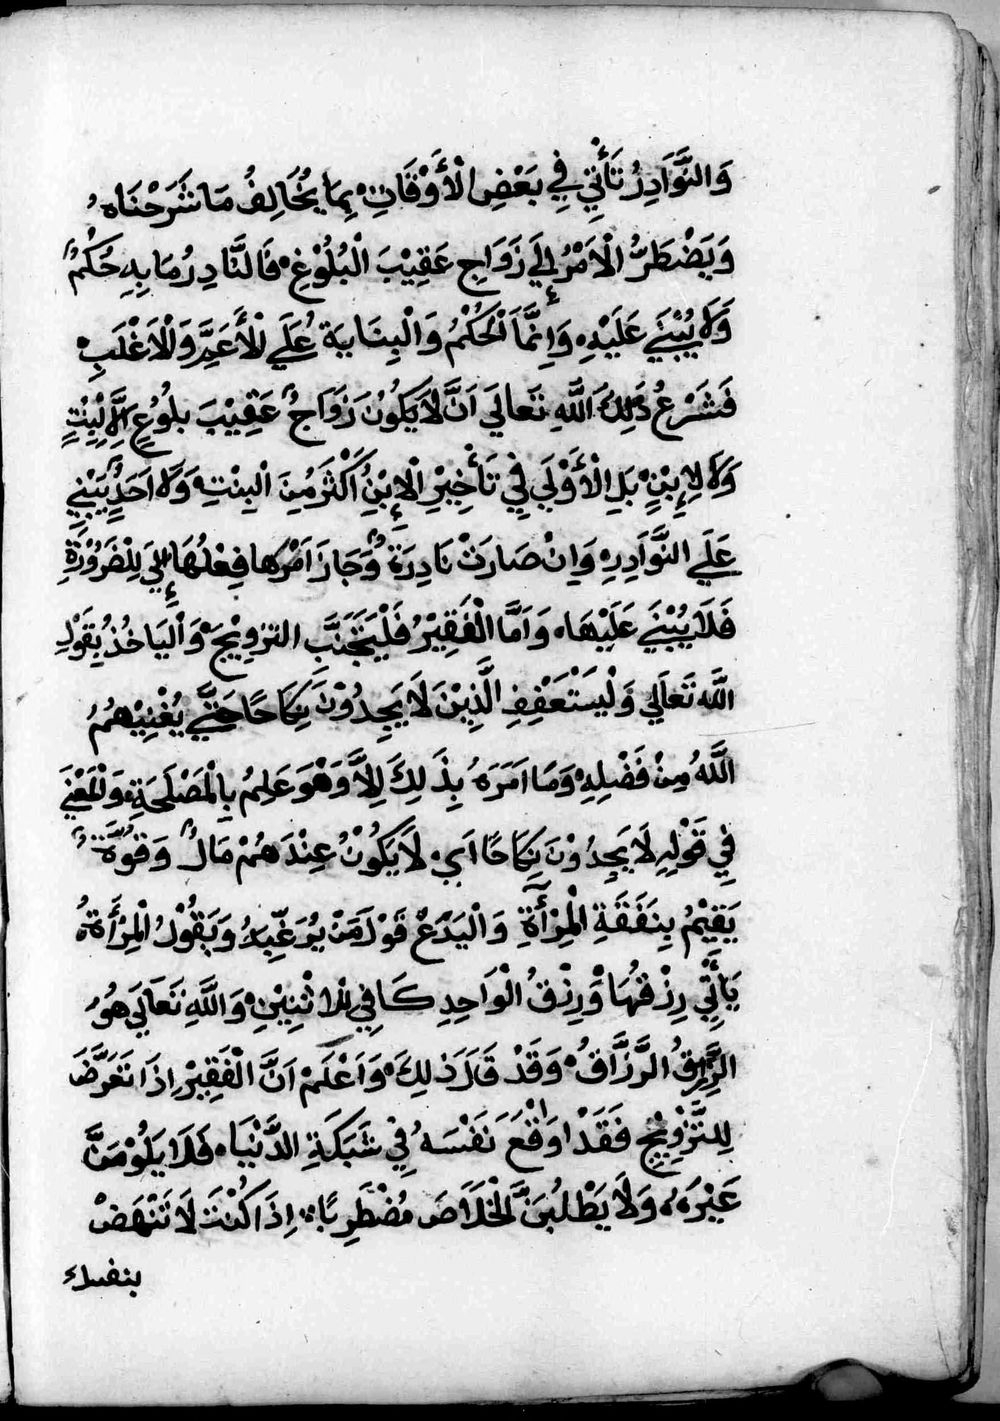 وَالنَّوَادِرُ تَأْتِي فِي بَعْضِ الْأَوْقَاتِ بِمَا يُخَالِفُ مَا شَرَحْنَاهُ
وَيَضْطَرُّ الْاَمْرُ اِلَي زَوَاجٍ عَقِيْبَ الْبُلُوْغِ فَالنَّادِرُ مَا بِهِ حُكْمٌ
وَلَا يُبْنَي عَلَيْهِ وَاِنَّمَا الْحُكْمُ وَالْبِنَايَةُ عَلَي الْأَعَمِّ وَالْاَغْلَبِ
فَشَرْعُ ذٰلِكَ اللَّهِ تَعَالَي اَنَّ لَا يَكُوْنُ زَوَاجٌ عَقِيْبَ بلُوْغٍ لَا لِبِنْتٍ
وَلَا لِاِبْنٍ بَلِ الْأَوْلَي فِي تَأْخِيْرِ الْاِبْنِ أَكْثَرَ مِنَ الْبِنْتِ وَلَا اَحَدٌ يَبْنِي
عَلَي النَّوَادِرِ وَاِنْ صَارَتْ نَادِرَةٌ وَجَازَ اَمْرُهَا فِعْلُهَا اِلَي لِلْضَرُوْرَةِ
فَلَا يُبْنَي عَلَيْهَا وَاَمَّا الْفَقِيْرُ فَلْيَتَجَنَّبِ التزوِيْجَ وَالْيَاخُذْ بِقَوْلِ
اللَّه تَعَالَي وَلْيَسْتَعْفِفِ الَّذِيْنَ لَا يَجِدُوْنَ نِكَاحًا حَتَّي يُغْنِيْهُمُ
اللَّهُ مِنْ فَضْلِهِ وَمَا اَمَرَهُ بِذَلِكَ اِلَّا وَهْوَ عَلِمُ بِالْمَصْلَحَةِ وَالْمَعْنَي
فِي قَوْلِهِ لَا يَجِدُوْنَ نِكَاحًا اَيْ لَا يَكُوْنُ عِنْدَهُمْ مَالٌ وَقُوَّةٌ
يَقِيْمُ بِنَفَقَةِ الْمِرْأَةِ وَالْيَدَعْ قَوْلَ مَنْ يُرَغِّبُهُ وَيَقُوْلُ الْمِرْأَةُ
يَأْتِي رِزْقُهَا وَرِزْقُ الْوَاحِدِ كَافِي لْلاثْنِيْنِ وَاللَّهِ تَعَالَي هُوَ
الرَّزَّاقُ وَقَدْ قَالَ ذٰلِكَ وَاَعْلَمْ اَنَّ الْفَقِيْرَ اِذَا تَعَرَّضَ
لِلتَّزْوِيْجِ فَقَدْ اوْقَعَ نَفْسَهُ فِي شَبَكَةِ الدَّنْيَا فَلَا يَلُوْمَنَّ
غَيْرَهُ وَلَا يَطْلُبَنَّ الْخَلَاصَ مُضْطَرِبًا اِذَا كُنْتَ لَا تَنْهَضْ
بنفسك